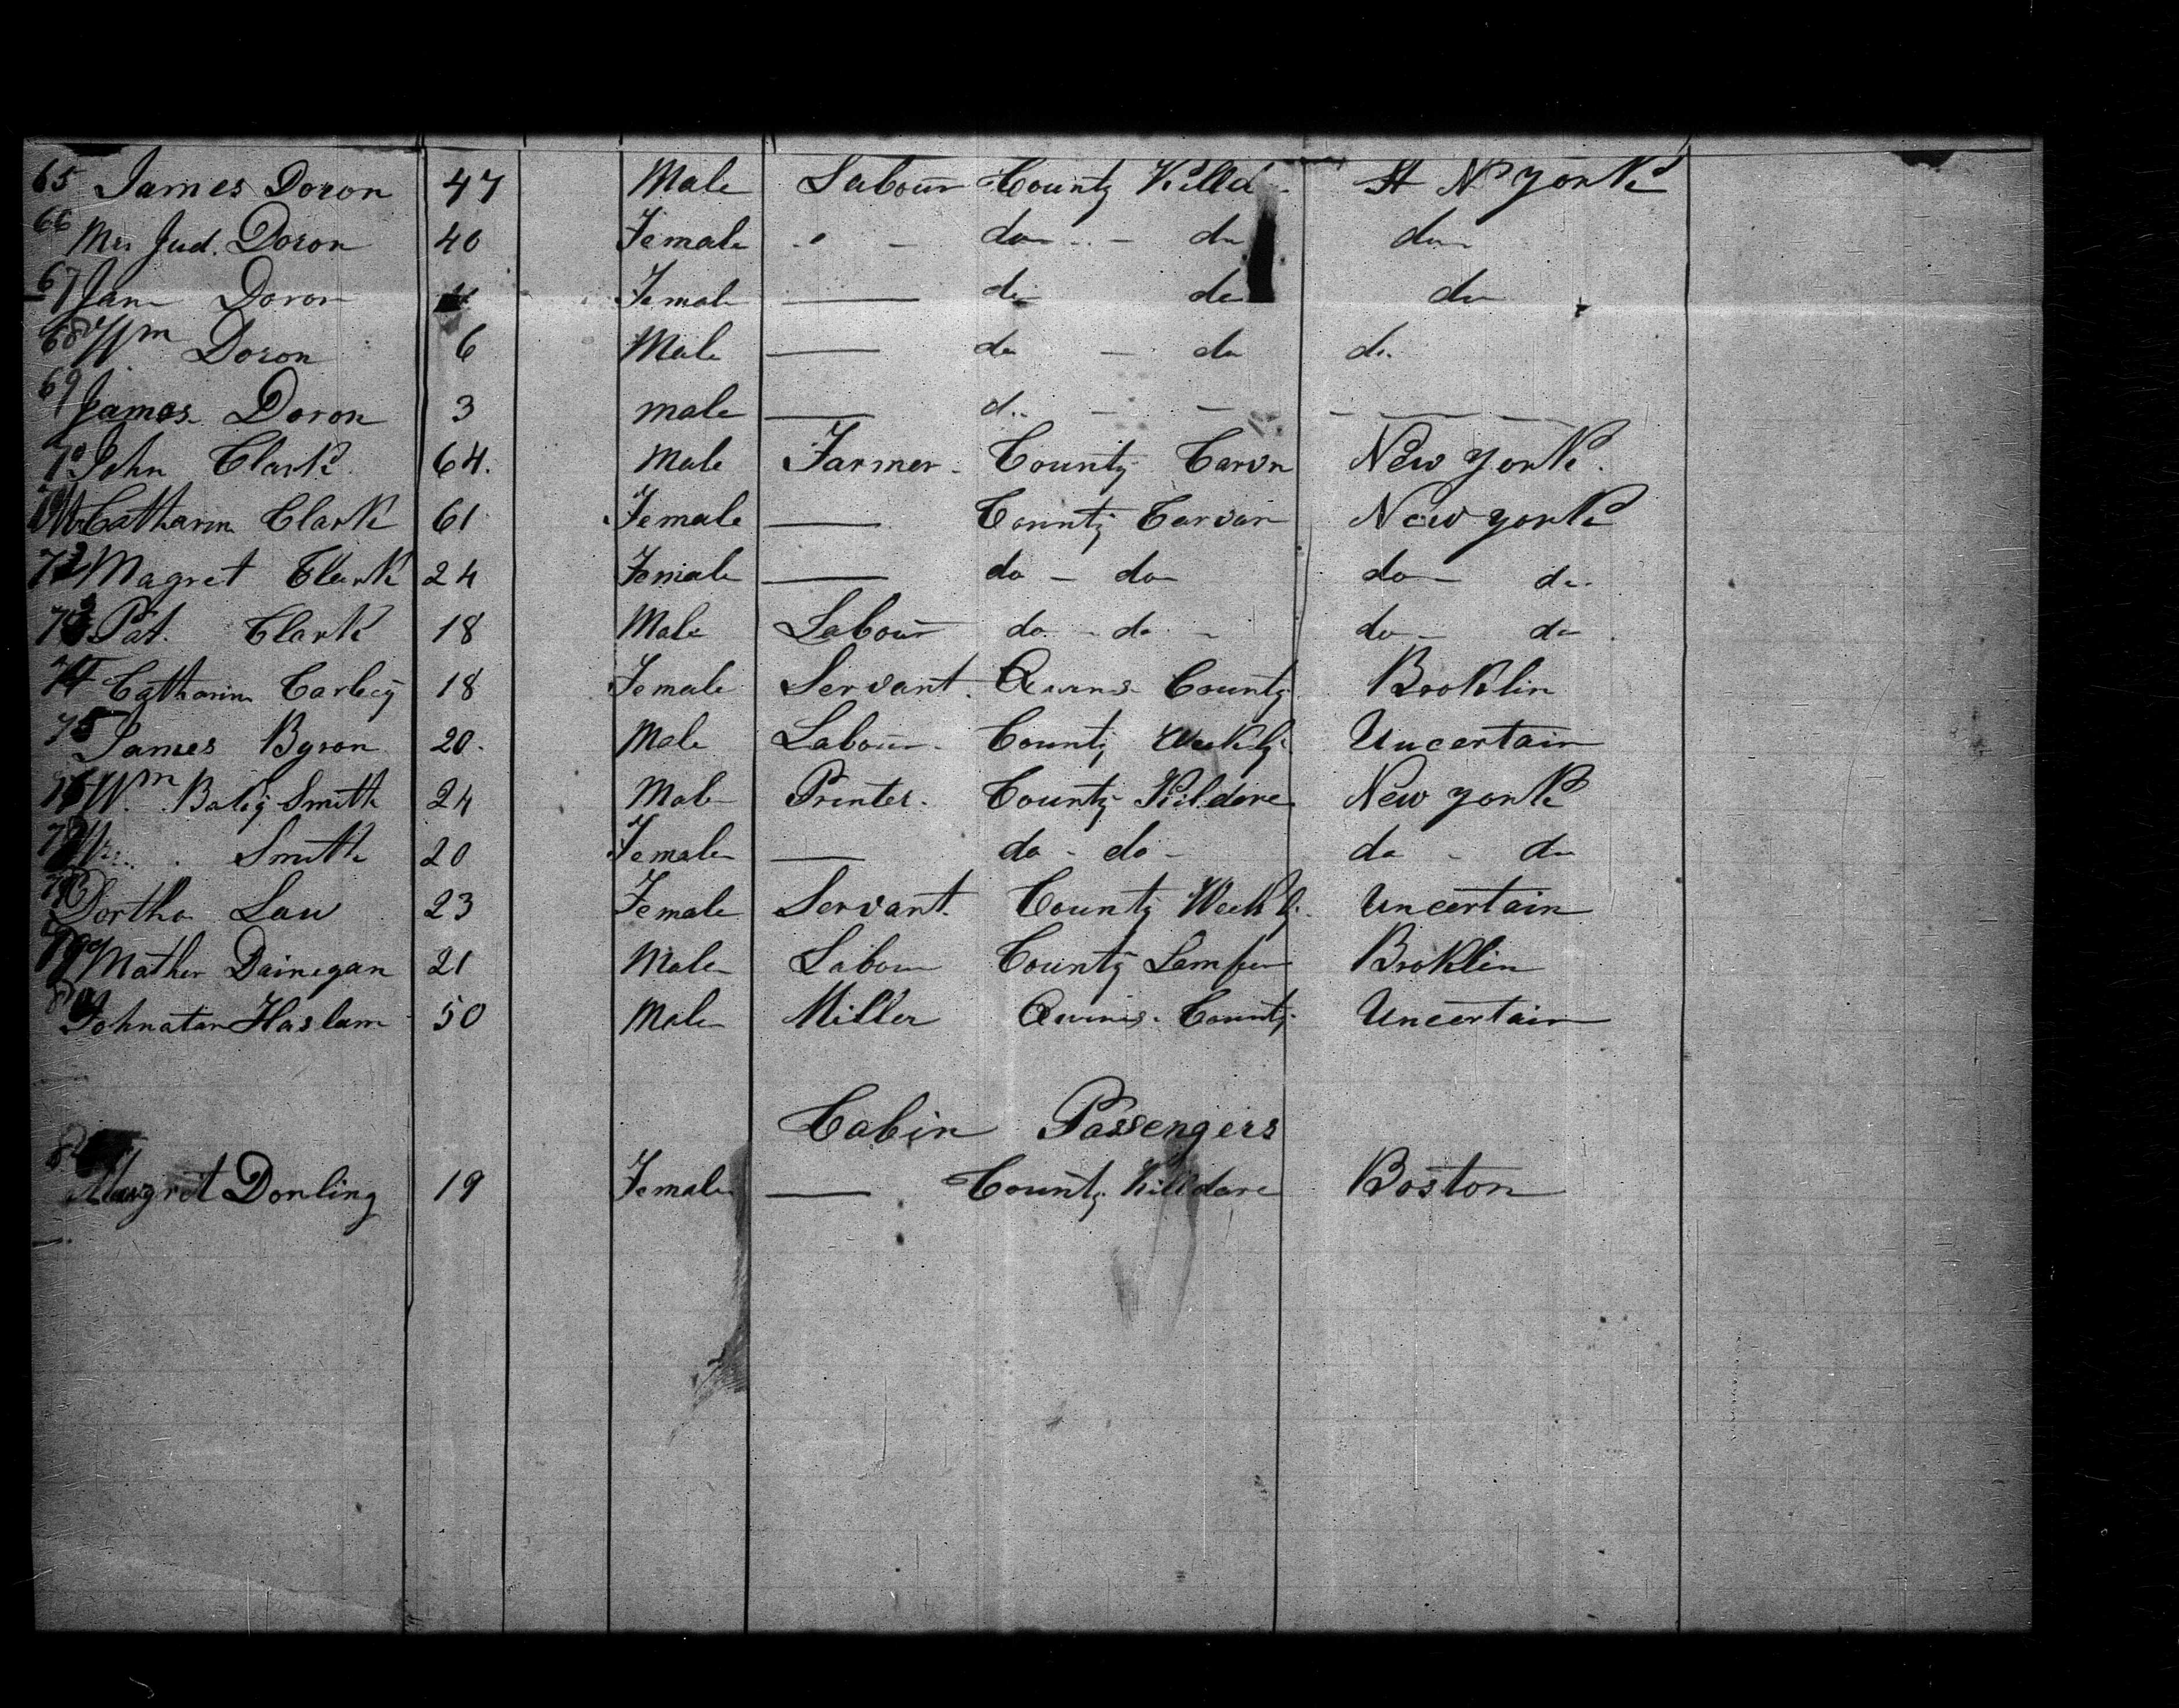 65 James Doron 47 Male Labour County Killd St N York
66 Mrs Jud. Doron 40 Female do do do
67 Jane Doron Female do do do
68 Wm Doron 6 Male do do do
69 James Doron 3 male do
70 John Clark 64. Male Farmer County Carvn New York
Catharin Clark 61 Female County Carvan New York
72 Magret Clark 24 Female do do do do
73 Pat. Clark 18 Male Labour do do do do
74 Catharin Carley 18 Female Servant Queens County Brooklin
75 James Byron 20. Male Labour County Weekly Uncertain
76 Wm Baley Smith 24 Male Printer County Kildare New York
77 Mrs Smith 20 Female do do do do
78 Dortha Law 23 Female Servant County Weekly Uncertain
79 Mather Dainegan 21 Male Labour County Brooklin
80 Johnatan Haslam 50 Male Miller Queens County Uncertain
Cabin Passengers
Margret Donling 19 Female County Killdare Boston